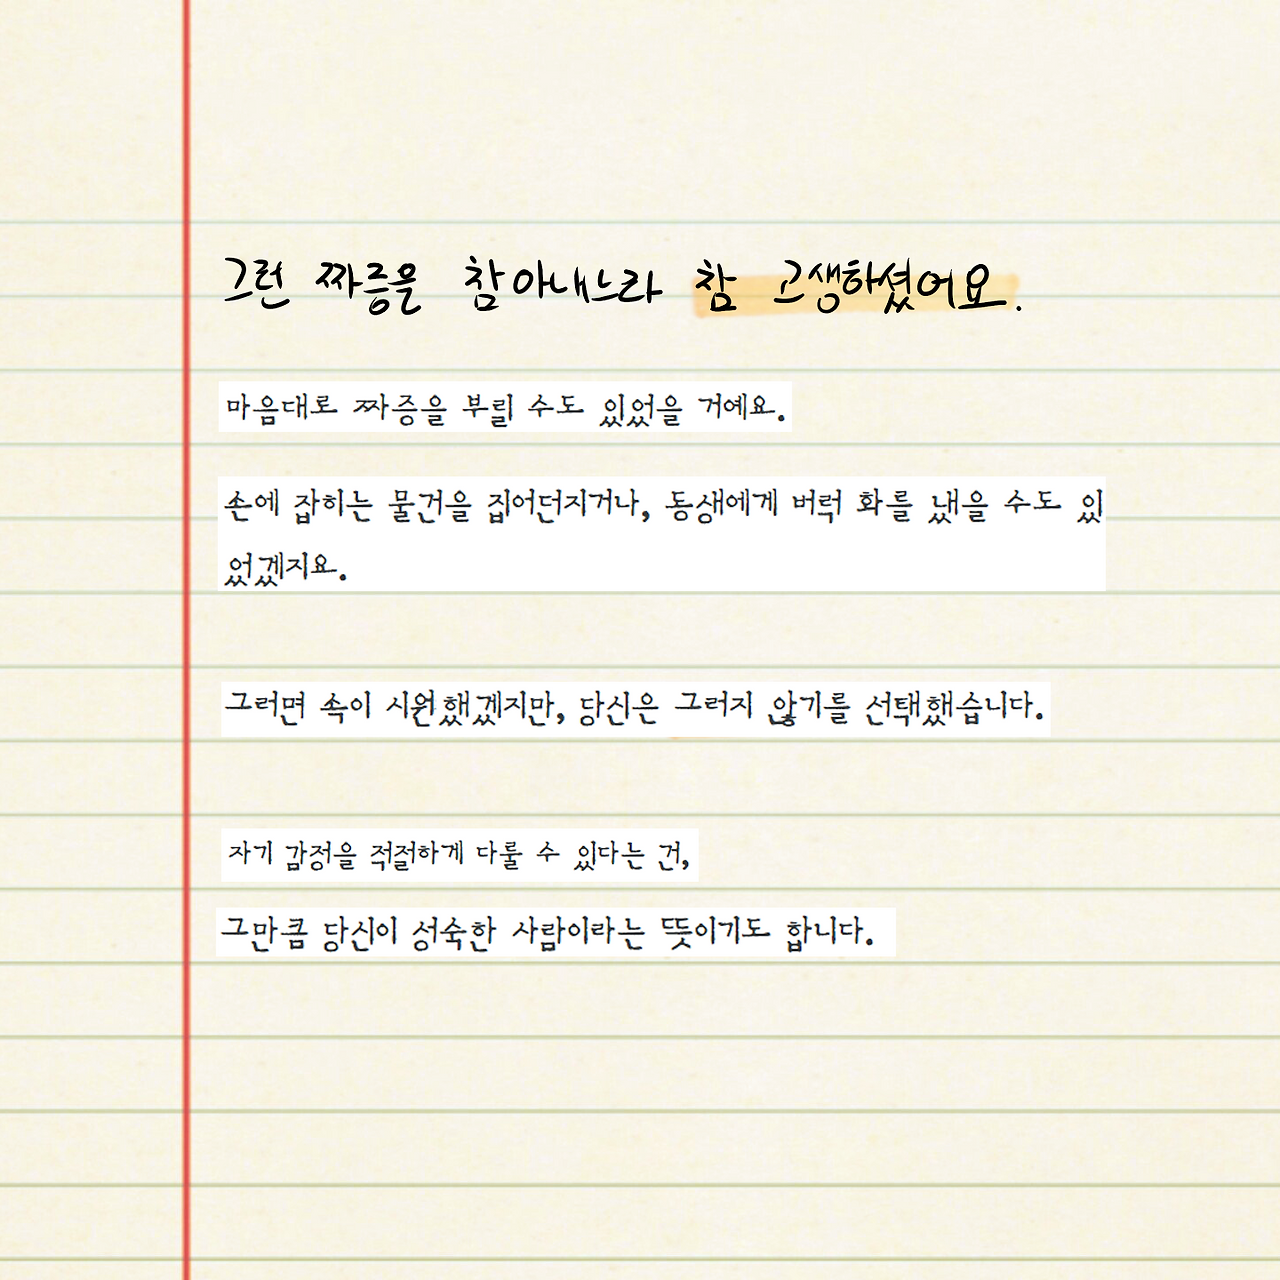 그런 짜증을 참아내느라 참 고생하셨어요.
마음대로 짜증을 부릴 수도 있었을 거예요.
손에 잡히는 물건을 집어던지거나, 동생에게 버럭 화를 냈을 수도 있
었겠지요.
그러면 속이 시원했겠지만, 당신은 그러지 않기를 선택했습니다.
자기 감정을 적절하게 다룰 수 있다는 건,
그만큼 당신이 성숙한 사람이라는 뜻이기도 합니다.